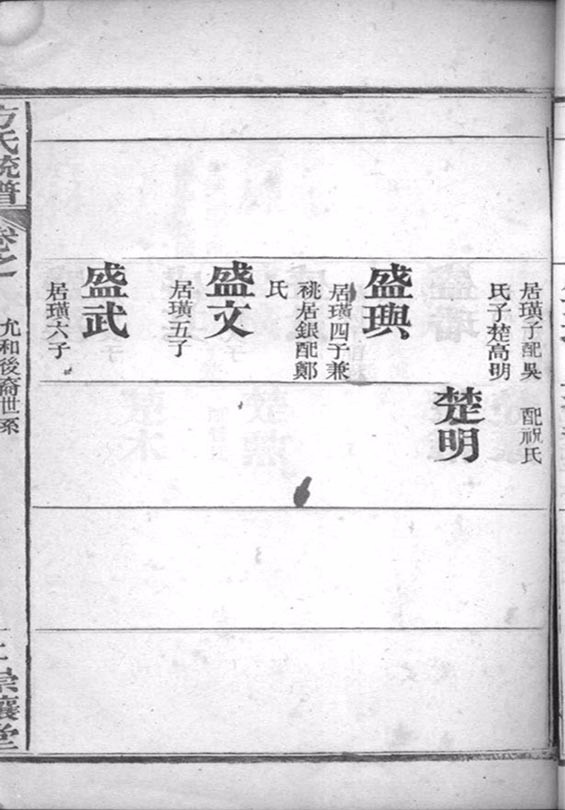 居璜子配吳
氏子楚高明
配祝氏
楚明
盛璵
居璜四子兼
祧居銀配鄭
氏
盛文
居璜五子
盛武
居璜六子
方氏統譜
卷之
允和後裔世系